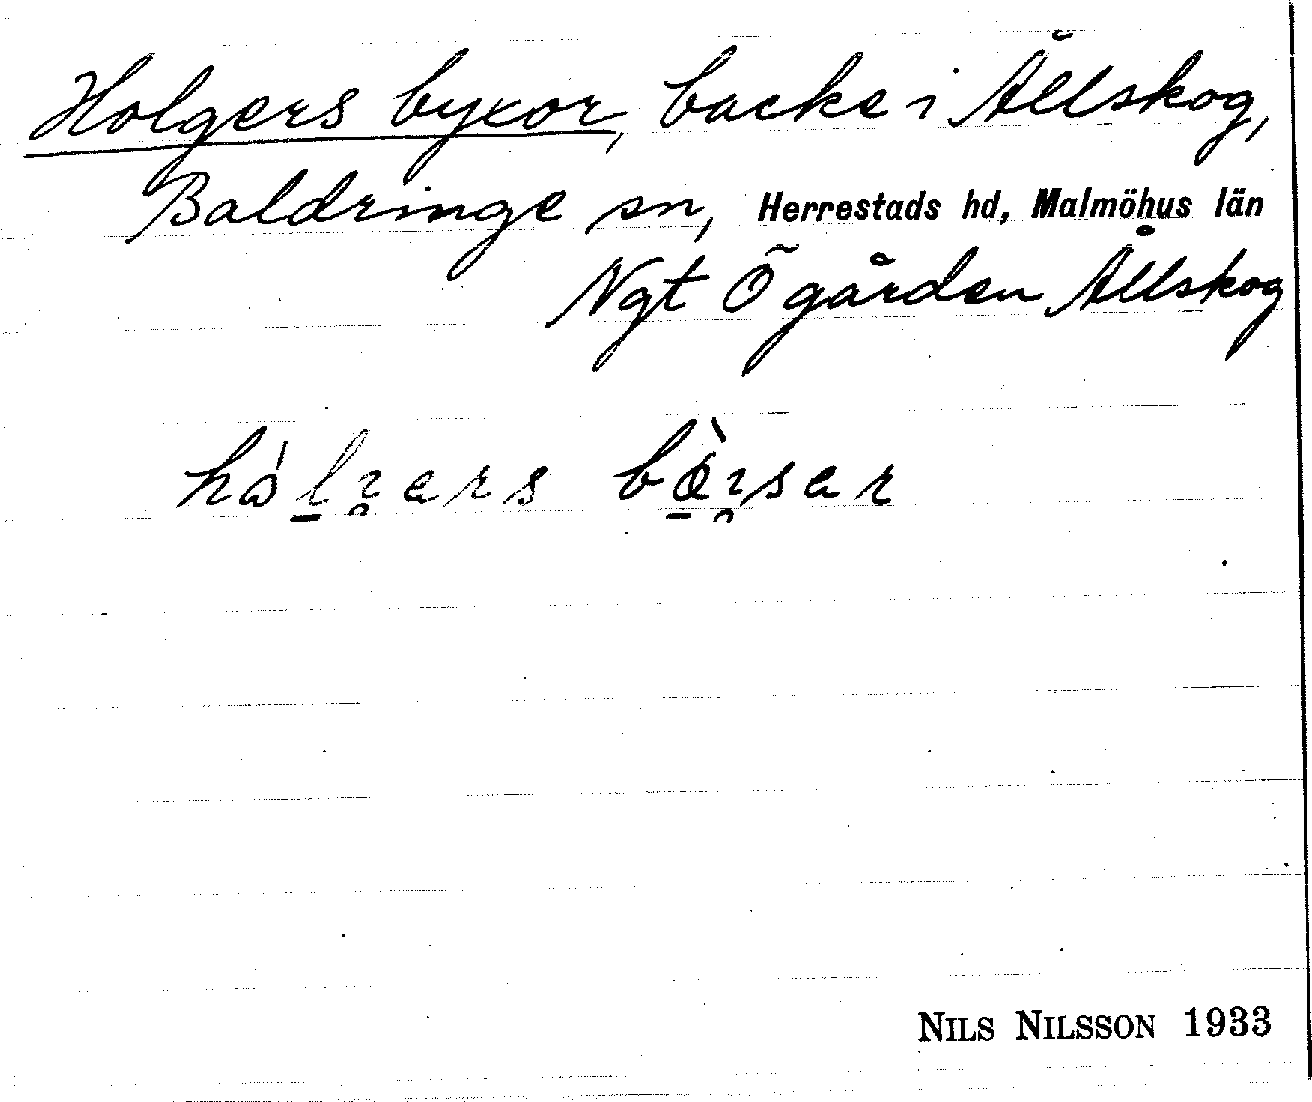 Holgers byxor, backe i Ållskog,
Baldringe sn, Herrestads hd, Malmöhus län
Ngt Ögården Ållskog
bȯ̀ısar
NILS NILSSON 1933